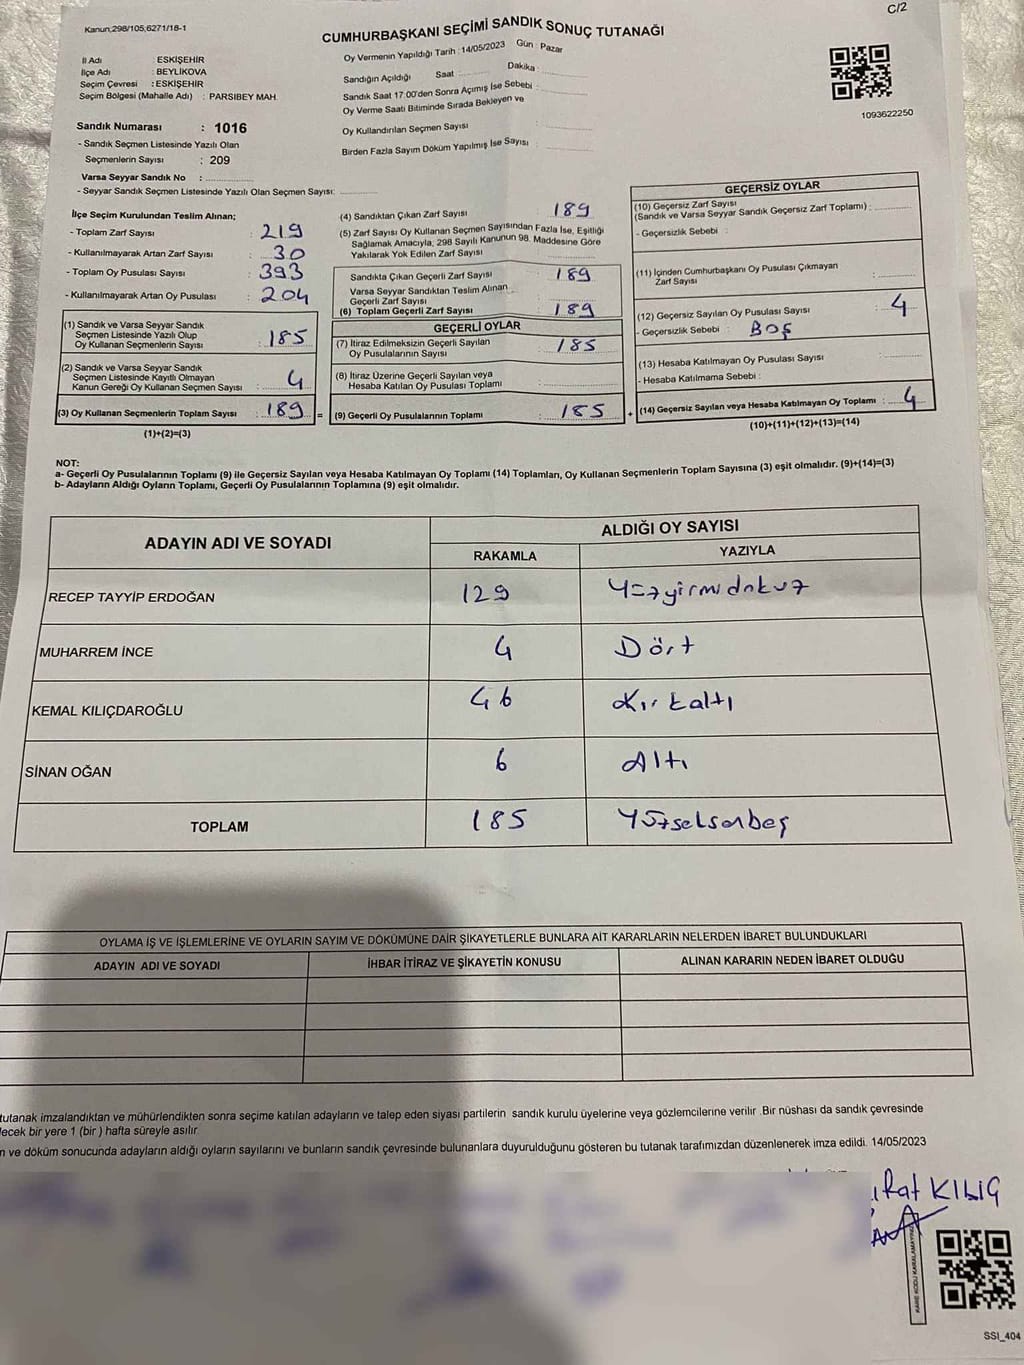 C/2
Kanun,298/105,6271/18-1
CUMHURBAŞKANI SEÇİMİ SANDIK SONUÇ TUTANAĞI
İl Adı : ESKİŞEHİR
İlçe Adı : BEYLİKOVA
Seçim Çevresi : ESKİŞEHİR
Seçim Bölgesi (Mahalle Adı) : PARSIBEY MAH.
Sandık Numarası : 1016
- Sandık Seçmen Listesinde Yazılı Olan
Seçmenlerin Sayısı : 209
Varsa Seyyar Sandık No :
- Seyyar Sandık Seçmen Listesinde Yazılı Olan Seçmen Sayısı:
Oy Vermenin Yapıldığı Tarih : 14/05/2023 Gün : Pazar
Sandığın Açıldığı Saat Dakika :
Sandık Saat 17:00'den Sonra Açımış İse Sebebi :
Oy Verme Saati Bitiminde Sırada Bekleyen ve
Oy Kullandırılan Seçmen Sayısı :
Birden Fazla Sayım Döküm Yapılmış İse Sayısı :
1093622250
İlçe Seçim Kurulundan Teslim Alınan;
- Toplam Zarf Sayısı : 219
- Kullanılmayarak Artan Zarf Sayısı : 30
- Toplam Oy Pusulası Sayısı : 393
- Kullanılmayarak Artan Oy Pusulası : 204
(1) Sandık ve Varsa Seyyar Sandık
Seçmen Listesinde Yazılı Olup
Oy Kullanan Seçmenlerin Sayısı : 185
(2) Sandık ve Varsa Seyyar Sandık
Seçmen Listesinde Kayıtlı Olmayan
Kanun Gereği Oy Kullanan Seçmen Sayısı : 4
(3) Oy Kullanan Seçmenlerin Toplam Sayısı : 189 =
(1)+(2)=(3)
(4) Sandıktan Çıkan Zarf Sayısı : 189
(5) Zarf Sayısı Oy Kullanan Seçmen Sayısından Fazla İse, Eşitliği
Sağlamak Amacıyla, 298 Sayılı Kanunun 98. Maddesine Göre
Yakılarak Yok Edilen Zarf Sayısı :
Sandıkta Çıkan Geçerli Zarf Sayısı : 189
Varsa Seyyar Sandıktan Teslim Alınan
Geçerli Zarf Sayısı :
(6) Toplam Geçerli Zarf Sayısı : 189
GEÇERLİ OYLAR
(7) İtiraz Edilmeksizin Geçerli Sayılan
Oy Pusulalarının Sayısı : 185
(8) İtiraz Üzerine Geçerli Sayılan veya
Hesaba Katılan Oy Pusulası Toplamı :
(9) Geçerli Oy Pusulalarının Toplamı : 185 +
GEÇERSİZ OYLAR
(10) Geçersiz Zarf Sayısı
(Sandık ve Varsa Seyyar Sandık Geçersiz Zarf Toplamı) :
- Geçersizlik Sebebi :
(11) İçinden Cumhurbaşkanı Oy Pusulası Çıkmayan
Zarf Sayısı :
(12) Geçersiz Sayılan Oy Pusulası Sayısı : 4
- Geçersizlik Sebebi : BOŞ
(13) Hesaba Katılmayan Oy Pusulası Sayısı :
- Hesaba Katılmama Sebebi :
(14) Geçersiz Sayılan veya Hesaba Katılmayan Oy Toplamı : 4
(10)+(11)+(12)+(13)=(14)
NOT:
a- Geçerli Oy Pusulalarının Toplamı (9) ile Geçersiz Sayılan veya Hesaba Katılmayan Oy Toplamı (14) Toplamları, Oy Kullanan Seçmenlerin Toplam Sayısına (3) eşit olmalıdır. (9)+(14)=(3)
b- Adayların Aldığı Oyların Toplamı, Geçerli Oy Pusulalarının Toplamına (9) eşit olmalıdır.
ADAYIN ADI VE SOYADI ALDIĞI OY SAYISI
RAKAMLA YAZIYLA
RECEP TAYYİP ERDOĞAN 129 Yüzyirmidokuz
MUHARREM İNCE 4 Dört
KEMAL KILIÇDAROĞLU 46 Kırkaltı
SİNAN OĞAN 6 Altı
TOPLAM 185 Yüzseksenbeş
OYLAMA İŞ VE İŞLEMLERİNE VE OYLARIN SAYIM VE DÖKÜMÜNE DAİR ŞİKAYETLERLE BUNLARA AİT KARARLARIN NELERDEN İBARET BULUNDUKLARI
ADAYIN ADI VE SOYADI İHBAR İTİRAZ VE ŞİKAYETİN KONUSU ALINAN KARARIN NEDEN İBARET OLDUĞU
tutanak imzalandıktan ve mühürlendikten sonra seçime katılan adayların ve talep eden siyasi partilerin sandık kurulu üyelerine veya gözlemcilerine verilir .Bir nüshası da sandık çevresinde
lecek bir yere 1 (bir ) hafta süreyle asılır
n ve döküm sonucunda adayların aldığı oyların sayılarını ve bunların sandık çevresinde bulunanlara duyurulduğunu gösteren bu tutanak tarafımızdan düzenlenerek imza edildi. 14/05/2023
KILIÇ
KARE KODU KARALAMAYINIZ
SSI_404